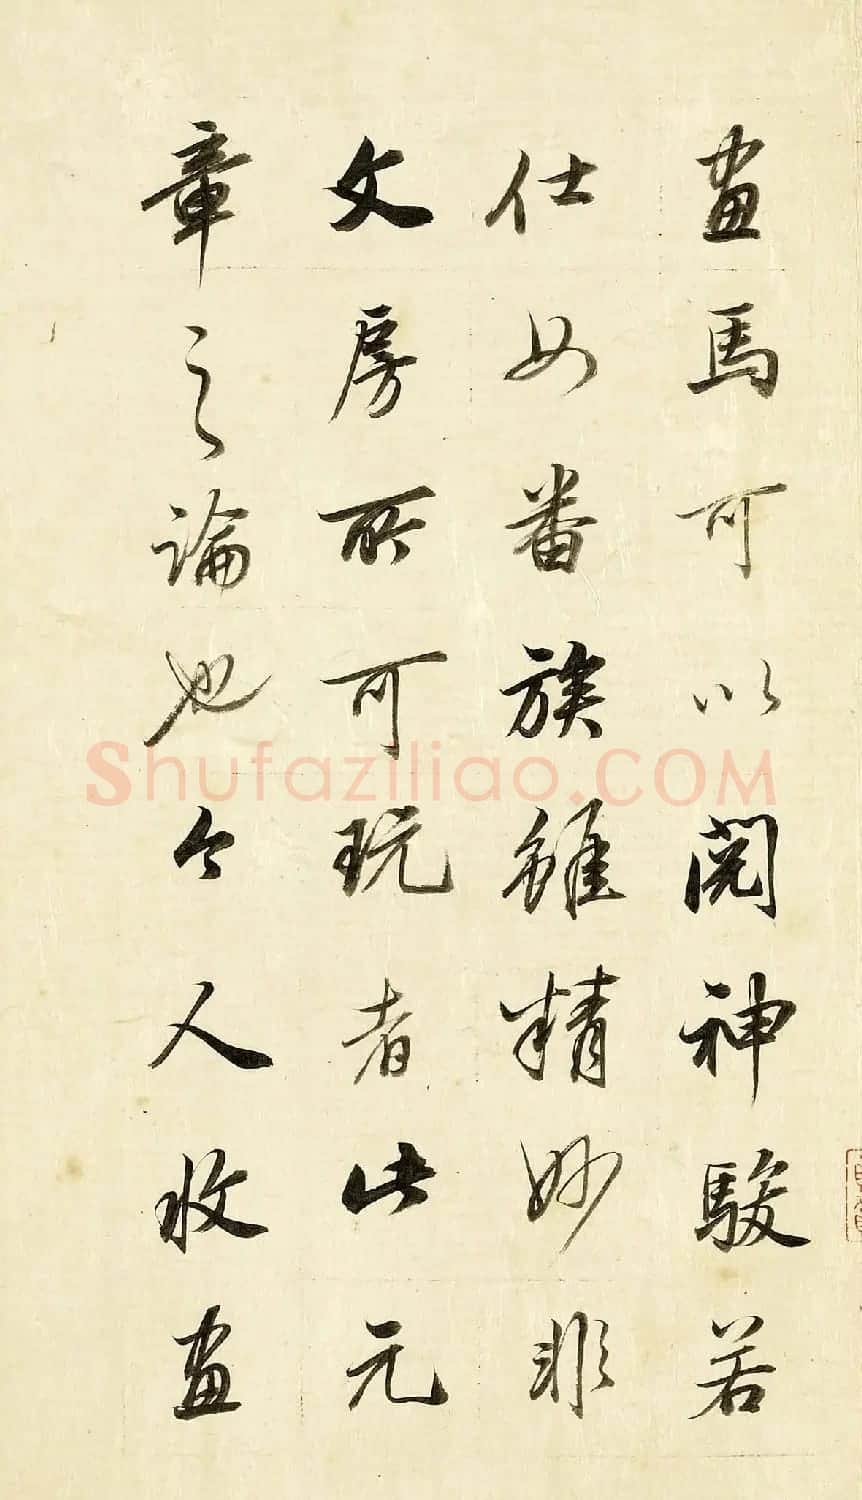 畫馬可以閱神駿若
仕女番族雖精妙非
文房所可玩者此元
章之論也今人收畫
Shufaziliao.COM